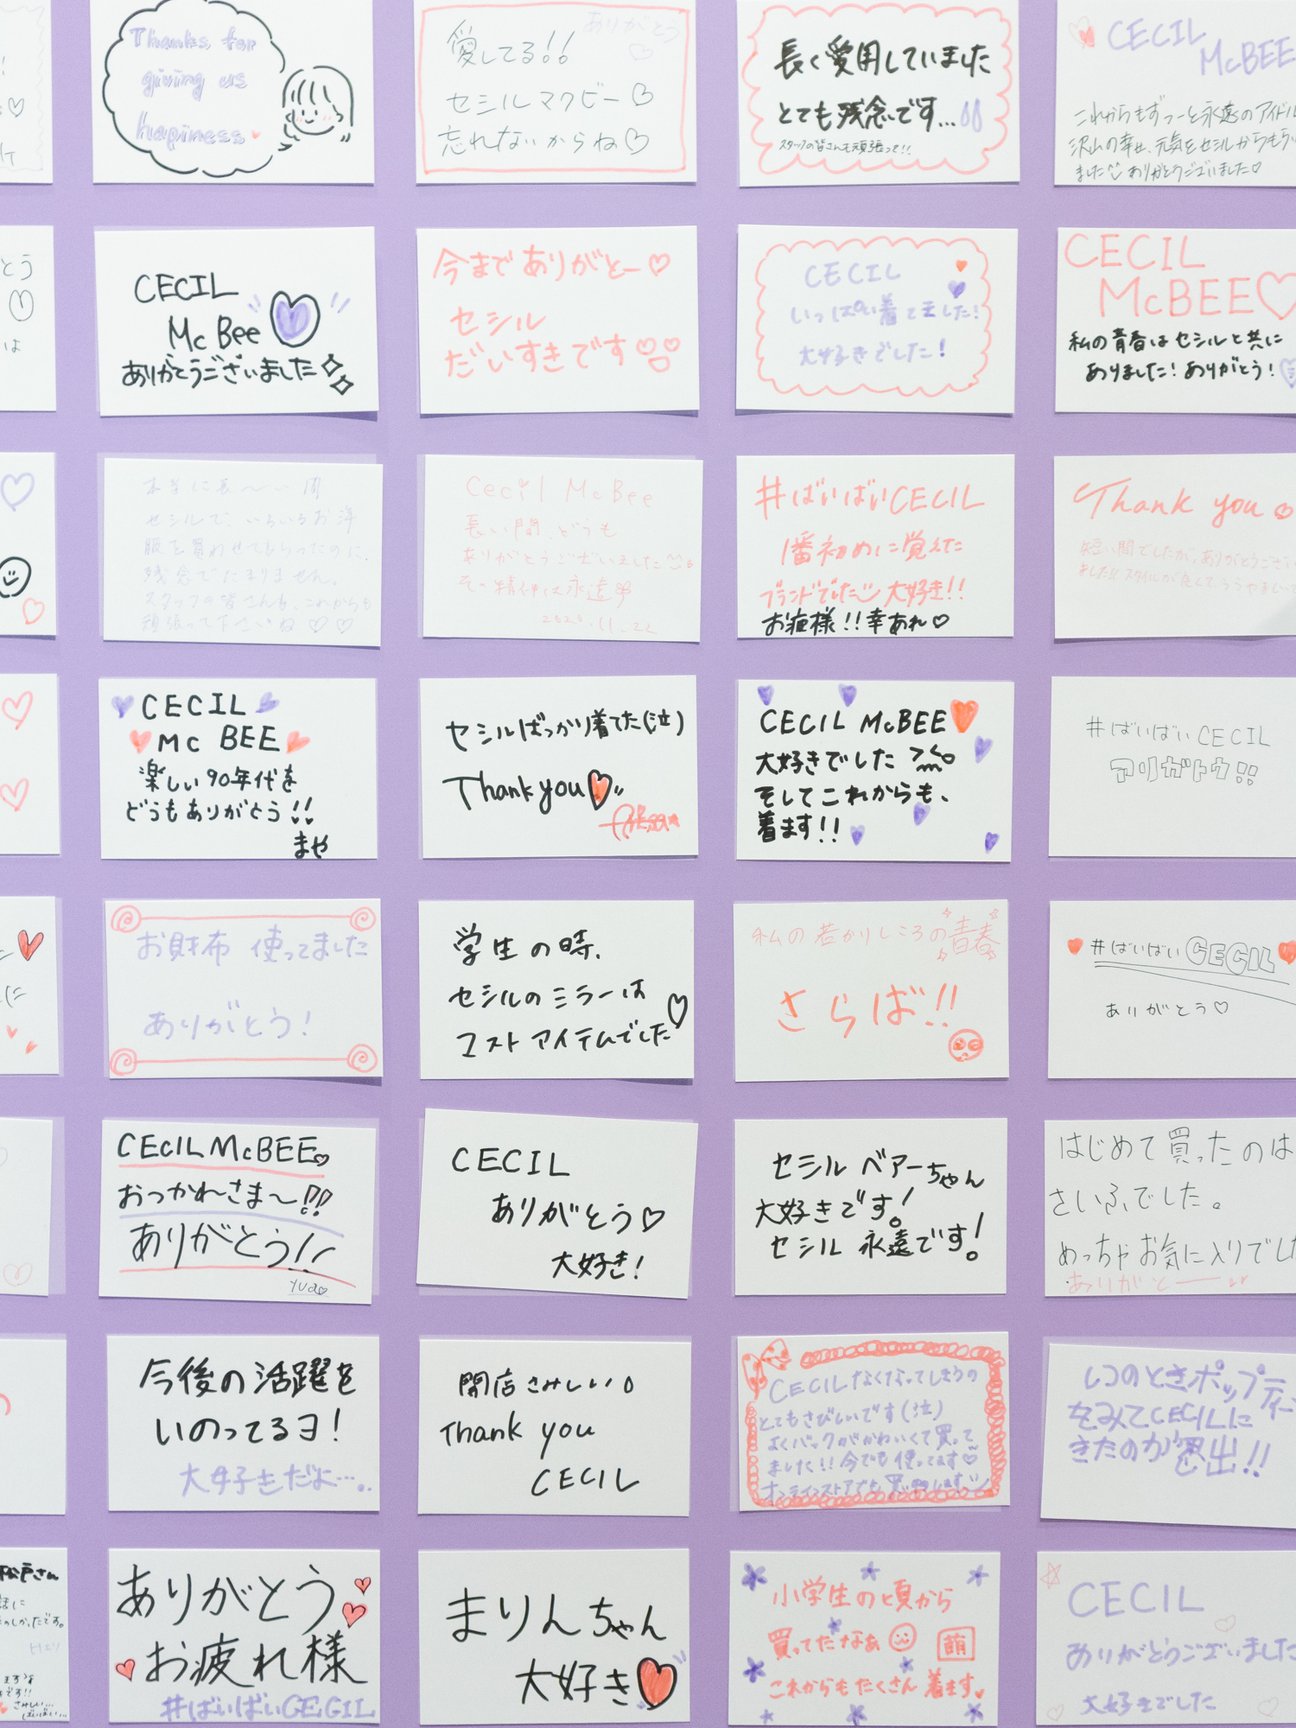 Thanks for
giving us
hapiness
ありがとう
愛してる!!
セシルマクビー♡
忘れないからね♡
長く愛用していました
とても残念です...
スタッフの皆さんも頑張って!!
CECIL
McBEE
これからもずーっと永遠のアイドル
沢山の幸せ、元気をセシルからもらい
ました ありがとうございました♡
とう
は
CECIL
Mc Bee
ありがとうございました
今までありがとー♡
セシル
だいすきです
CECIL
いっぱい着てました!
大好きでした!
CECIL
McBEE♡
私の青春はセシルと共に
ありました!ありがとう!
本当に長〜い間
セシルで、いろいろお洋
服を買わせてもらったのに、
残念でたまりません。
スタッフの皆さんも、これからも
頑張って下さいね♡♡
Cecil McBee
長い間、どうも
ありがとうございました
その精神は永遠
2020.11.22
#ばいばいCECIL
1番初めに覚えた
ブランドでした 大好き!!
お疲様!!幸あれ♡
Thank you
短い間でしたが、ありがとうござい
CECIL
Mc BEE
楽しい90年代を
どうもありがとう!!
まや
セシルばっかり着てた(泣)
Thank you
CECIL McBEE
大好きでした
そしてこれからも、
着ます!!
#ばいばいCECIL
アリガトウ!!
お財布 使ってました
ありがとう!
学生の時、
セシルのミラーは
マストアイテムでした♡
私の若かりしころの青春
さらば!!
#ばいばいCECIL
ありがとう♡
CECIL McBEE
おつかれさま〜!!
ありがとう!!
yua
CECIL
ありがとう♡
大好き!
セシル ベアーちゃん
大好きです!
セシル 永遠です!
はじめて買ったのは
さいふでした。
めっちゃお気に入りでした
ありがとー
今後の活躍を
いのってるヨ!
大好きだよ...
閉店さみしい
Thank you
CECIL
CECILなくなってしまうの
とてもさびしいです(泣)
よくバックがかわいくて買って
ました!!今でも使ってます♡
オンラインストアでも
JCのときポップティーン
をみてCECILに
きたのが思出!!
さん
ありがとう
お疲れ様
#ばいばいCECIL
まりんちゃん
大好き
小学生の頃から
買ってたなぁ
萌
これからもたくさん着ます
CECIL
ありがとうございました
大好きでした